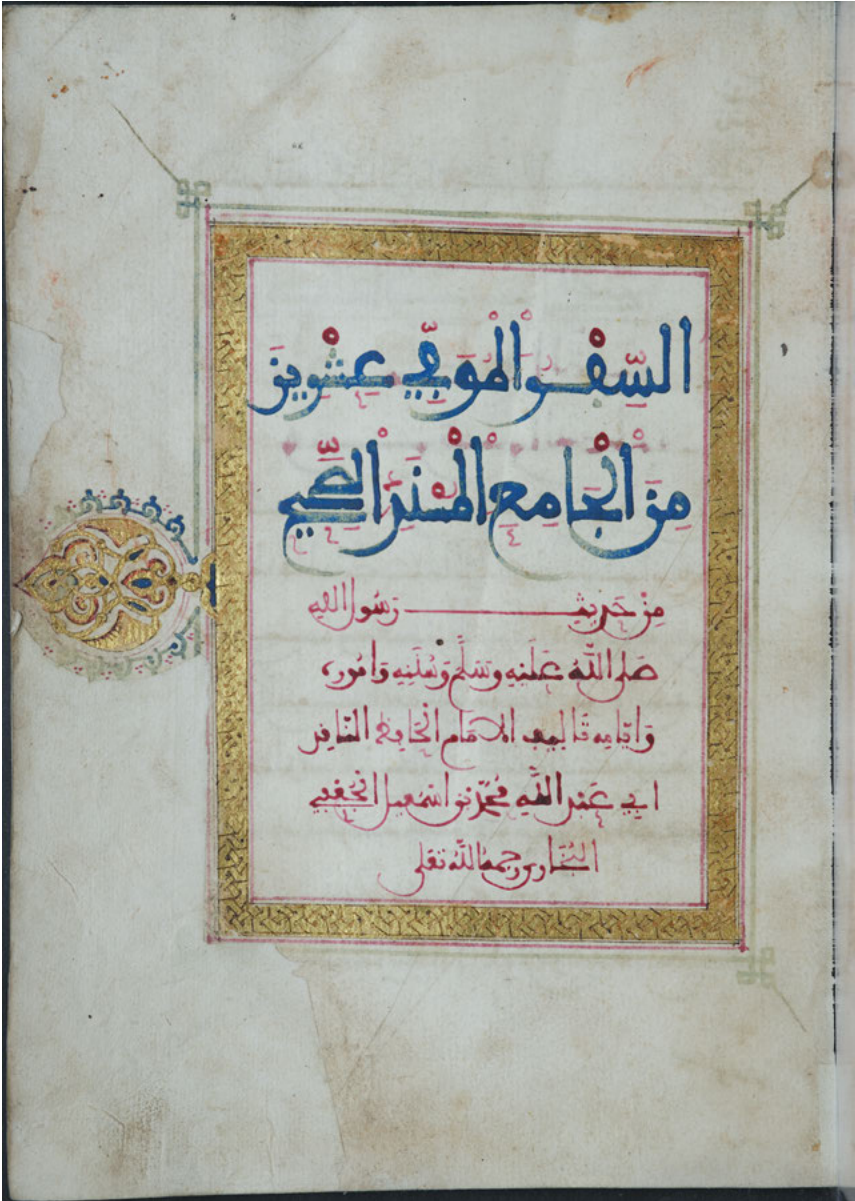 السِّفْرُ الْمُوَفِّي عِشْرِينَ
مِنَ الْجَامِعِ الْمُسْنَدِ الصَّحِيحِ
مِنْ حَدِيثِ رَسُولِ اللهِ
صَلَّى اللَّهُ عَلَيْهِ وَسَلَّمَ وَسُنَنِهِ وَأُمُورِهِ
وَأَيَّامِهِ تَأْلِيفِ الإِمَامِ الْحَافِظِ النَّاقِدِ
أَبِي عَبْدِ اللَّهِ مُحَمَّدِ بْنِ إِسْمَعِيلَ الْجُعْفِيِّ
الْبُخَارِيِّ رحمه اللَّه تعلى